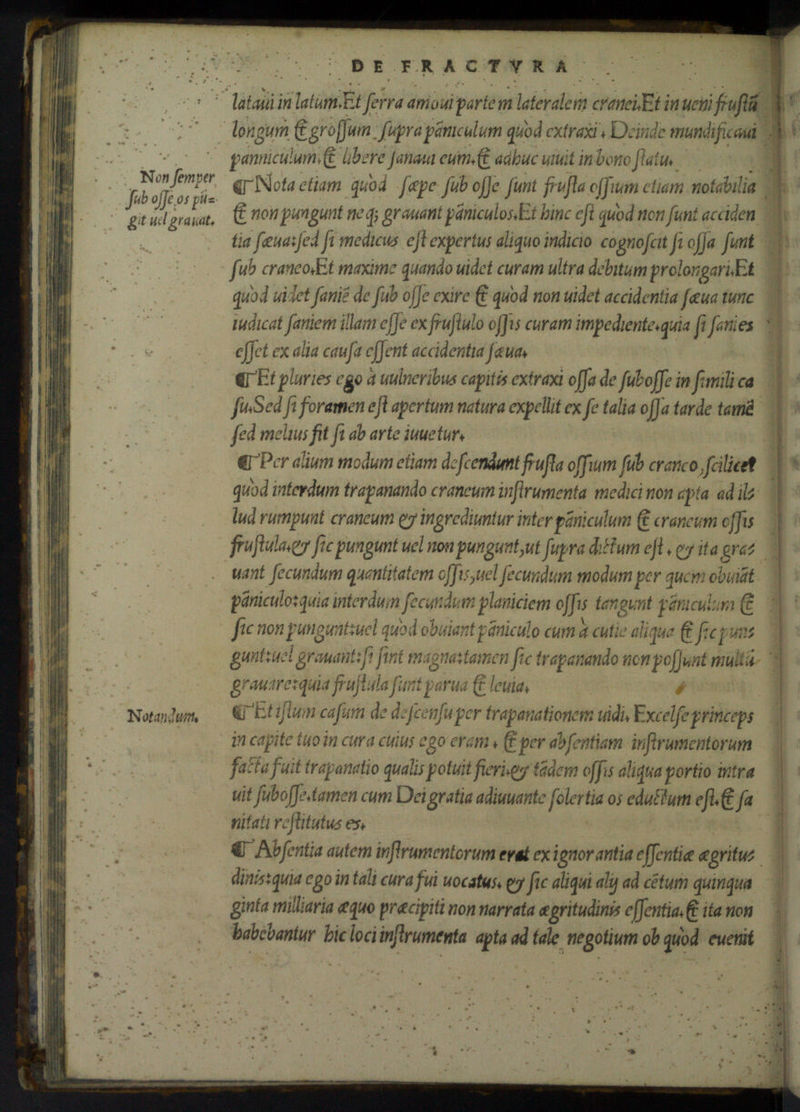 DE FRACTVRA
lataui in latum. Et serra amoui partem lateralem cranei. Et inueni frustū
longum & grossum supra pāniculum quod extraxi. Deinde mundificaui
panniculum, & libere sanaui eum. & adhuc uiuit in bono statu.
Non semper
sub osse os pū=
git uel grauat.
¶ Nota etiam quod sæpe sub osse sunt frusta ossium etiam notabilia
& non pungunt neq; grauant pāniculos. Et hinc est quod non sunt acciden
tia sæua: sed si medicus est expertus aliquo indicio cognoscit si ossa sunt
sub craneo. Et maxime quando uidet curam ultra debitum prolongari. Et
quod uidet saniē de sub osse exire & quod non uidet accidentia sæua tunc
iudicat saniem illam esse ex frustulo ossis curam impediente. quia si sanies
esset ex alia causa essent accidentia sæua.
¶ Et pluries ego à uulneribus capitis extraxi ossa de sub osse in simili ca
su. Sed si foramen est apertum natura expellit ex se talia ossa tarde tamē
sed melius fit si ab arte iuuetur.
¶ Per alium modum etiam descendunt frusta ossium sub craneo, scilicet
quod interdum trapanando craneum instrumenta medici non apta ad il=
lud rumpunt craneum & ingrediuntur inter pāniculum & craneum ossis
frustula. & sic pungunt uel non pungunt, ut supra dictum est. & ita gra=
uant secundum quantitatem ossis, uel secundum modum per quem obuiāt
pāniculo: quia interdum secundum planiciem ossis tangunt pāniculum &
sic non pungunt: uel quod obuiant pāniculo cum acutie aliqua & sic pun=
gunt: uel grauant: si sint magna: tamen sic trapanando non possunt multū
grauare: quia frustula sunt parua & leuia.
Notandum.
¶ Et istum casum de descensu per trapanationem uidi. Excelse princeps
in capite tuo in cura cuius ego eram. & per absentiam instrumentorum
facta fuit trapanatio qualis potuit fieri. & tādem ossis aliqua portio intra
uit sub osse. tamen cum Dei gratia adiuuante solertia os eductum est. & sa
nitati restitutus es.
¶ Absentia autem instrumentorum erat ex ignorantia essentiæ ægritu=
dinis: quia ego in tali cura fui uocatus. & sic aliqui alij ad cētum quinqua
ginta milliaria æquo præcipiti non narrata ægritudinis essentia. & ita non
habebantur hic loci instrumenta apta ad tale negotium ob quod euenit